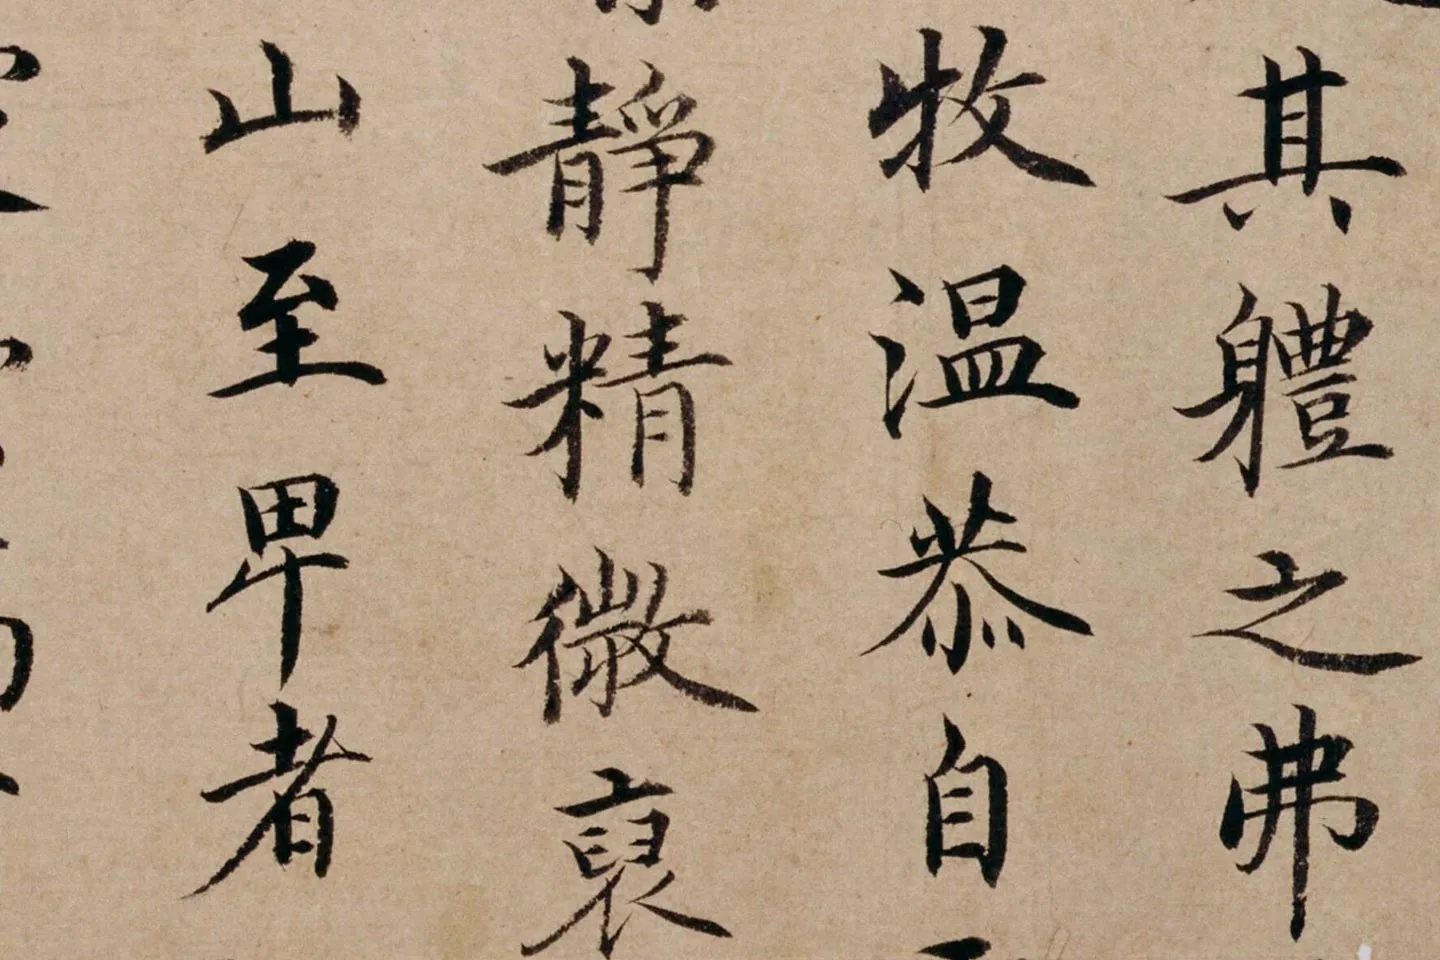 其軆之弗
牧温恭自
靜精微裒
山至卑者